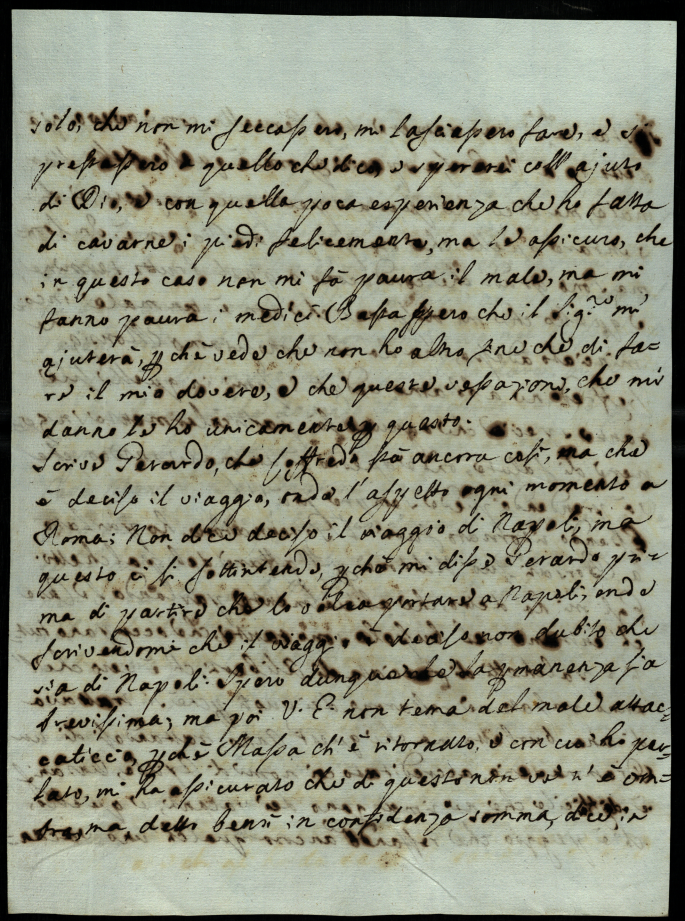 solo, che non mi seccassero, mi lasciassero fare, e si
prestassero a quello che dico, e spererei coll'ajuto
di Dio, e con quella poca esperienza che ho fatta
di cavarne i piedi felicemente, ma le assicuro, che
in questo caso non mi fà paura il male, ma mi
fanno paura i medici. Basta spero che il Sig.re mi
ajuterà, pchè vede che non ho altro fine che di fa-
re il mio dovere, e che queste vessazioni, che mi
danno le ho unicamente p questo.
Scrive Gerardo, che Soffredo stà ancora così, ma che
è deciso il viaggio, onde l'aspetto ogni momento a
Roma; Non dice deciso il viaggio di Napoli, ma
questo ci si sottintende, pchè mi disse Gerardo pri-
ma di partire che lo volea portare a Napoli, onde
scrivendomi che il viaggio è deciso non dubito che
sia di Napoli. Spero dunque che la pmanenza sia
brevissima; ma poi V. E. non tema del male attac-
caticcio, pchè Massa ch'è ritornato, e con cui ho par-
lato, mi ha assicurato che di questo non ve n'è om-
bra, ma detto bensì in confidenza somma, dice in